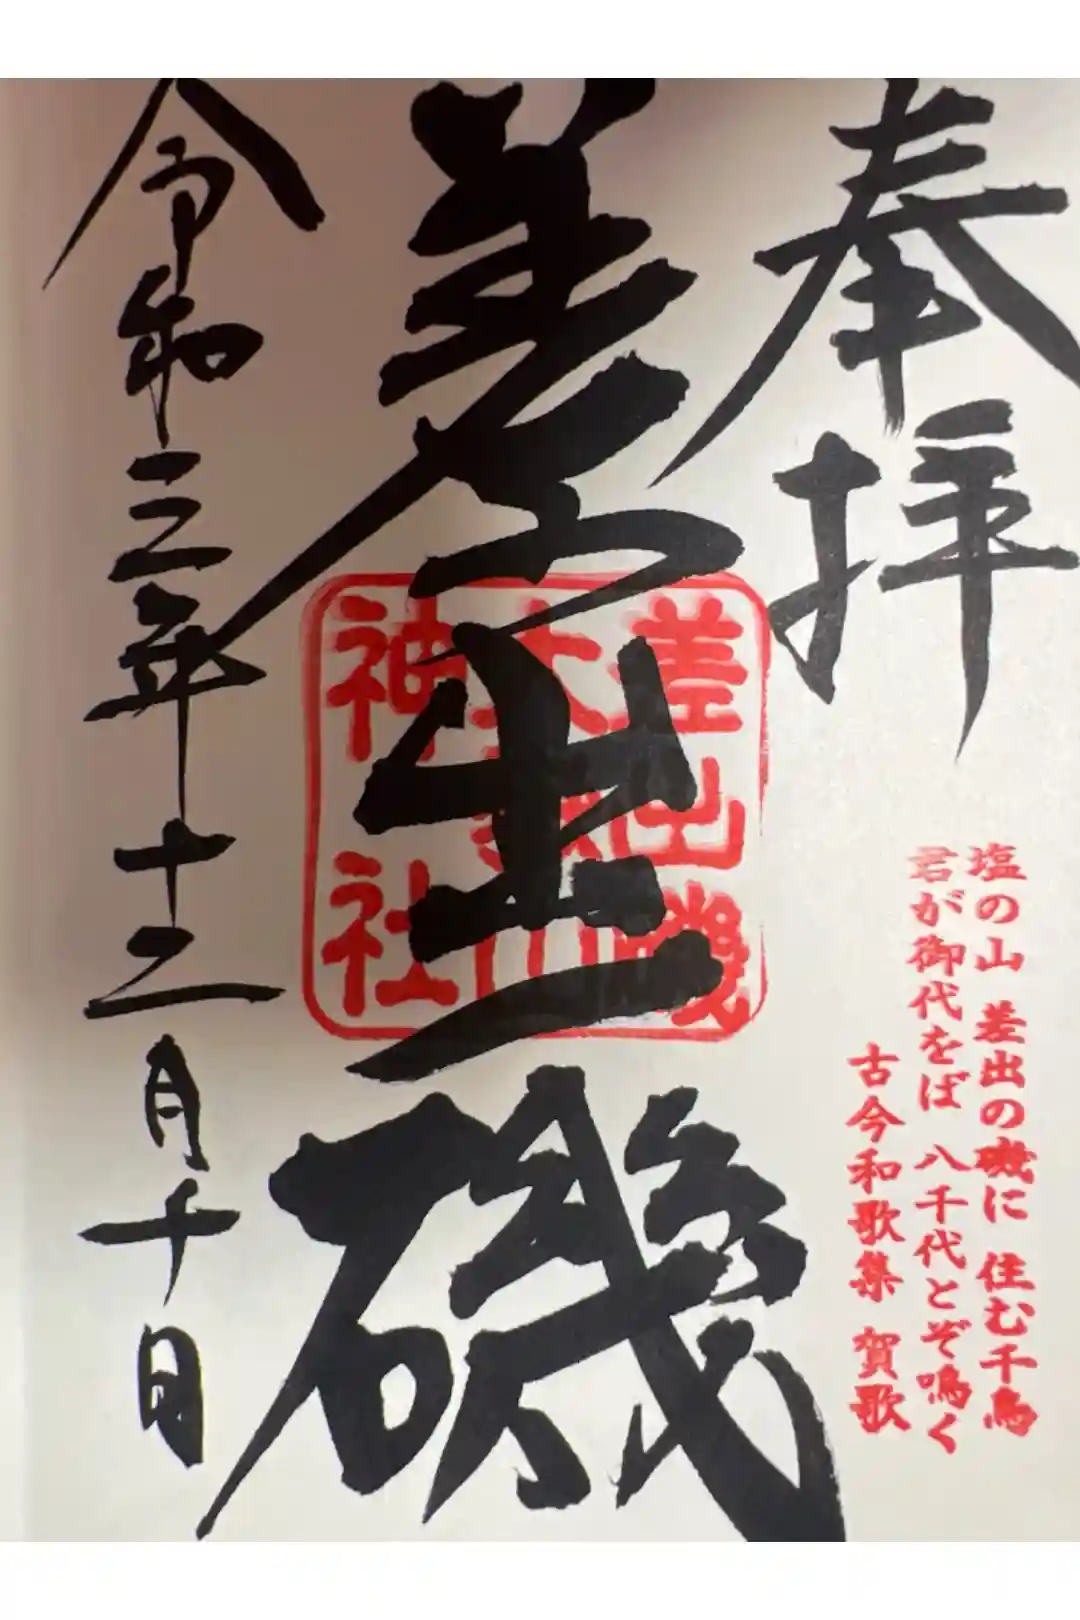 奉拝
塩の山 差出の磯に 住む千鳥
君が御代をば 八千代とぞ鳴く
古今和歌集 賀歌
差出磯
差出磯
大嶽山
神社
令和三年十二月十日